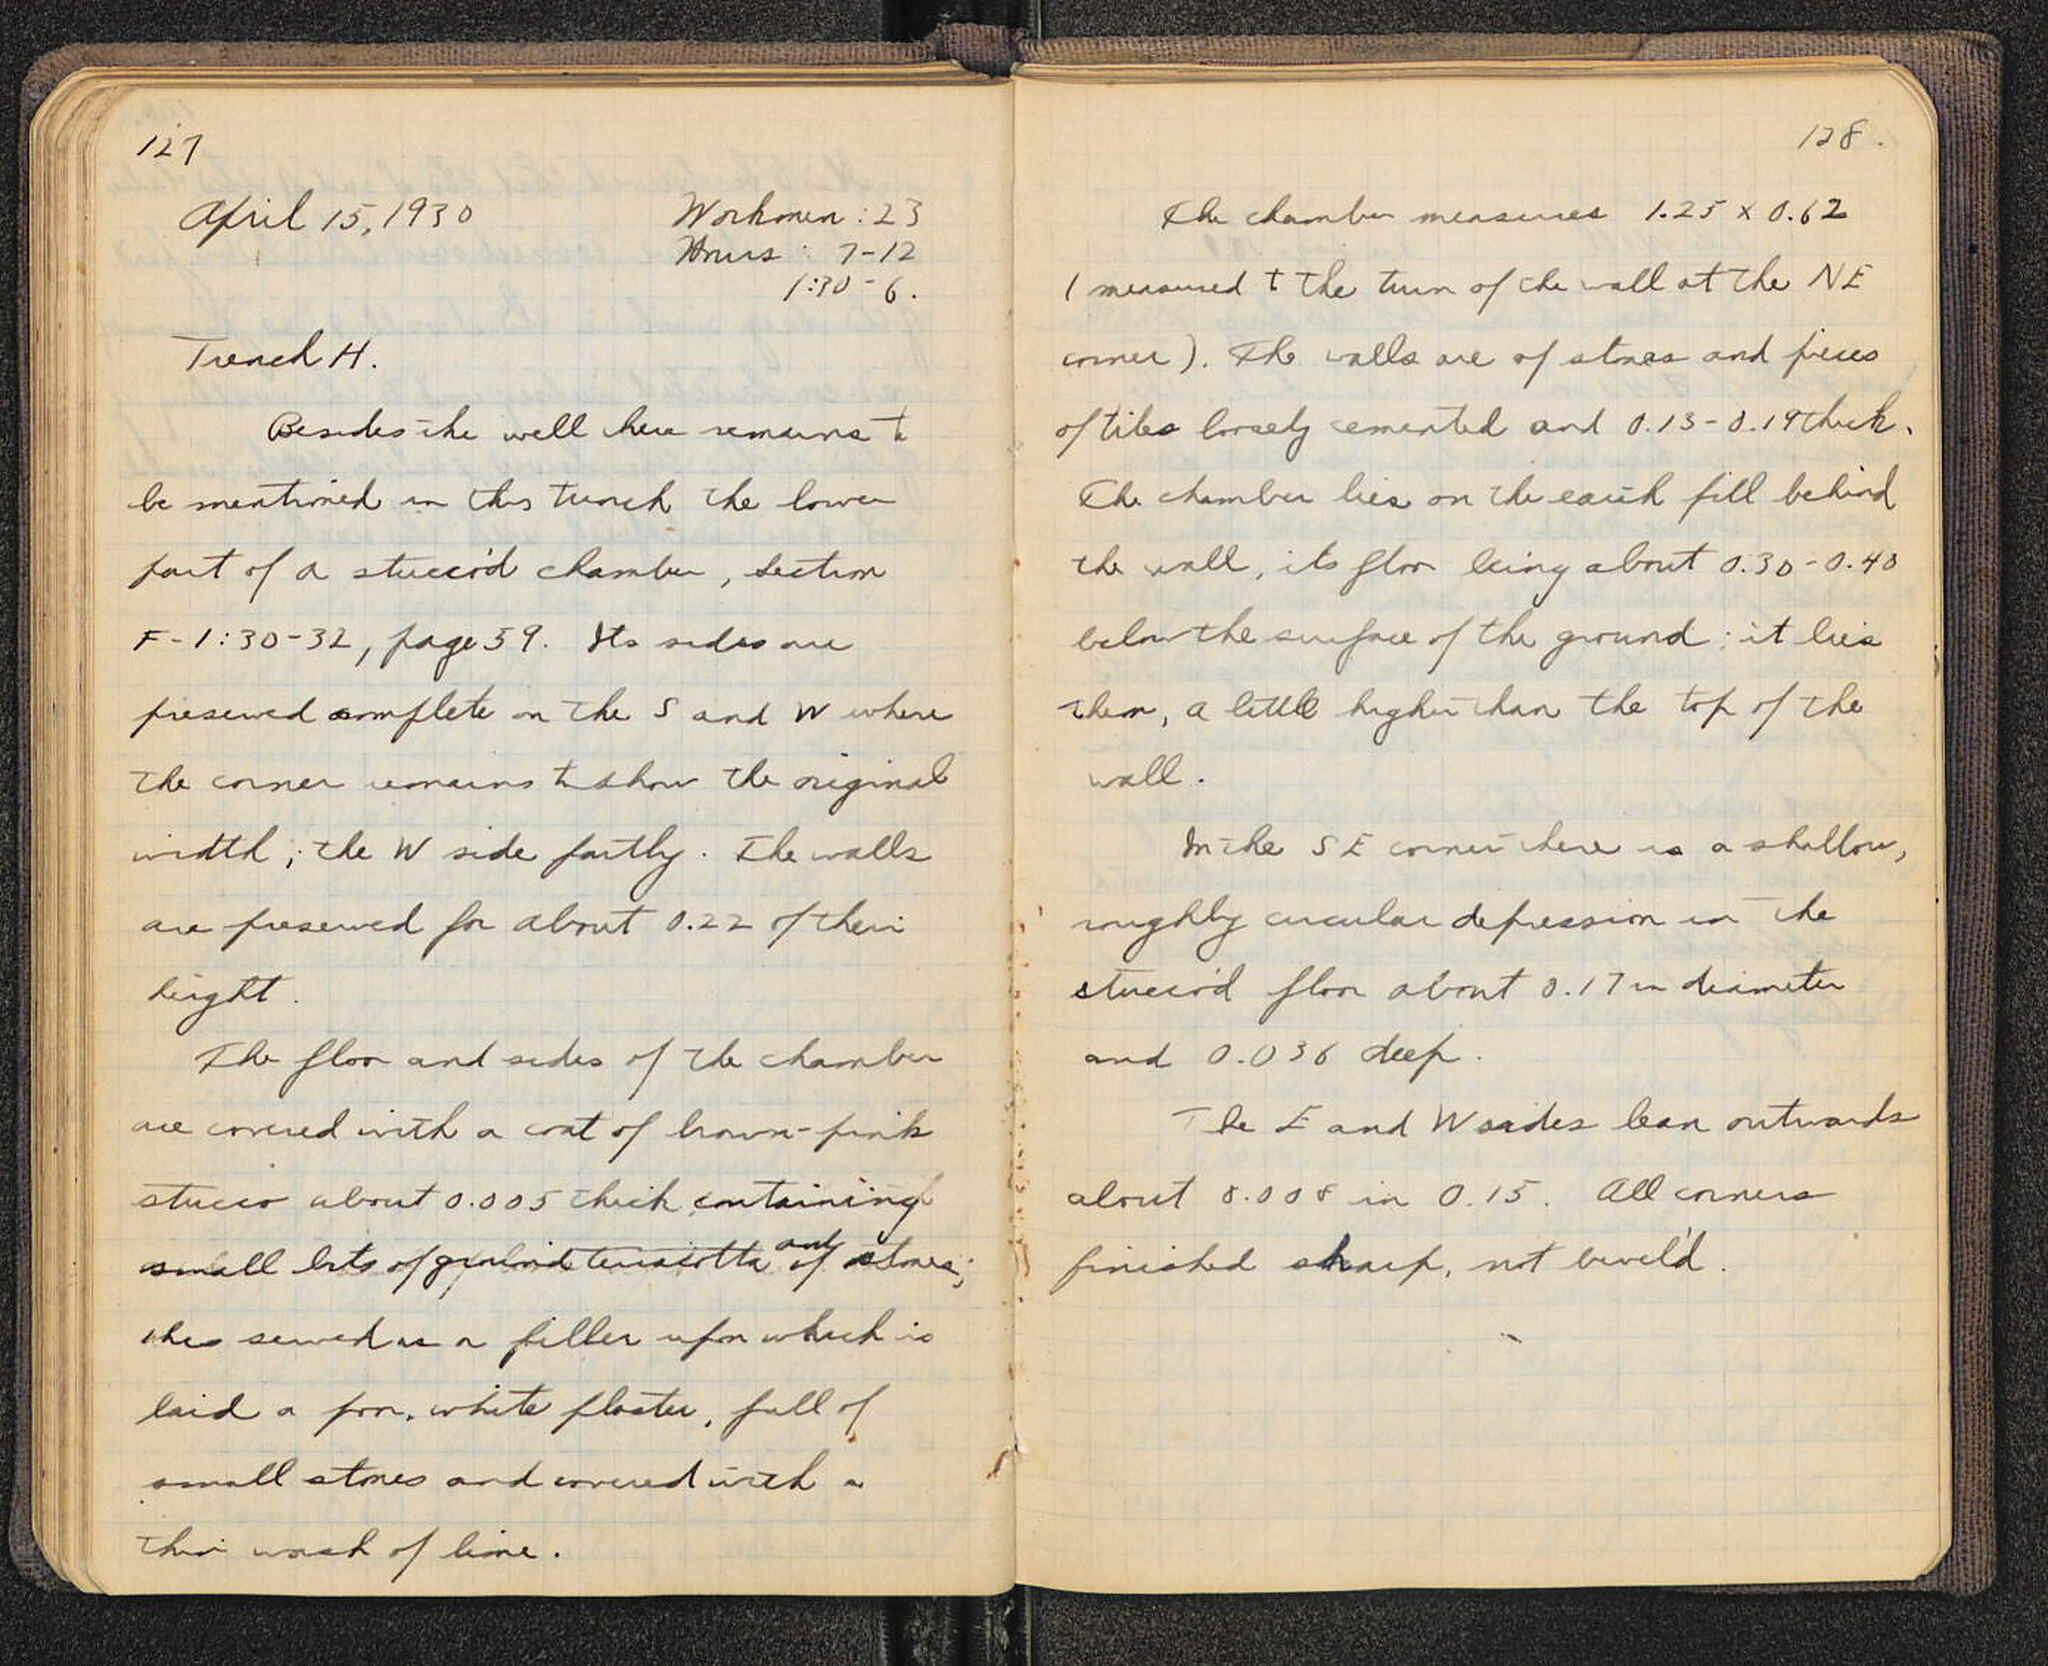 127
April 15, 1930 Workmen : 23
Hours : 7-12
1:30-6.
Trench H.
Besides the well there remains to
be mentioned in this trench the lower
part of a stucco'd chamber, section
F-1:30-32, page 59. Its sides are
preserved complete on the S and W where
the corner remains to show the original
width; the W side partly. The walls
are preserved for about 0.22 of their
height.
The floor and sides of the chamber
are covered with a coat of brown-pink
stucco about 0.005 thick containing
small bits of ground terracotta and of stones;
this served as a filler upon which is
laid a poor, white plaster, full of
small stones and covered with a
thin wash of lime.
128.
The chamber measures 1.25 x 0.62
(measured to the turn of the wall at the NE
corner). The walls are of stones and pieces
of tiles loosely cemented and 0.13-0.19 thick.
The chamber lies on the earth fill behind
the wall, its floor being about 0.30-0.40
below the surface of the ground; it lies
then, a little higher than the top of the
wall.
In the SE corner there is a shallow,
roughly circular depression in the
stucco'd floor about 0.17 in diameter
and 0.036 deep.
The E and W sides lean outwards
about 0.008 in 0.15. All corners
finished sharp, not bevel'd.